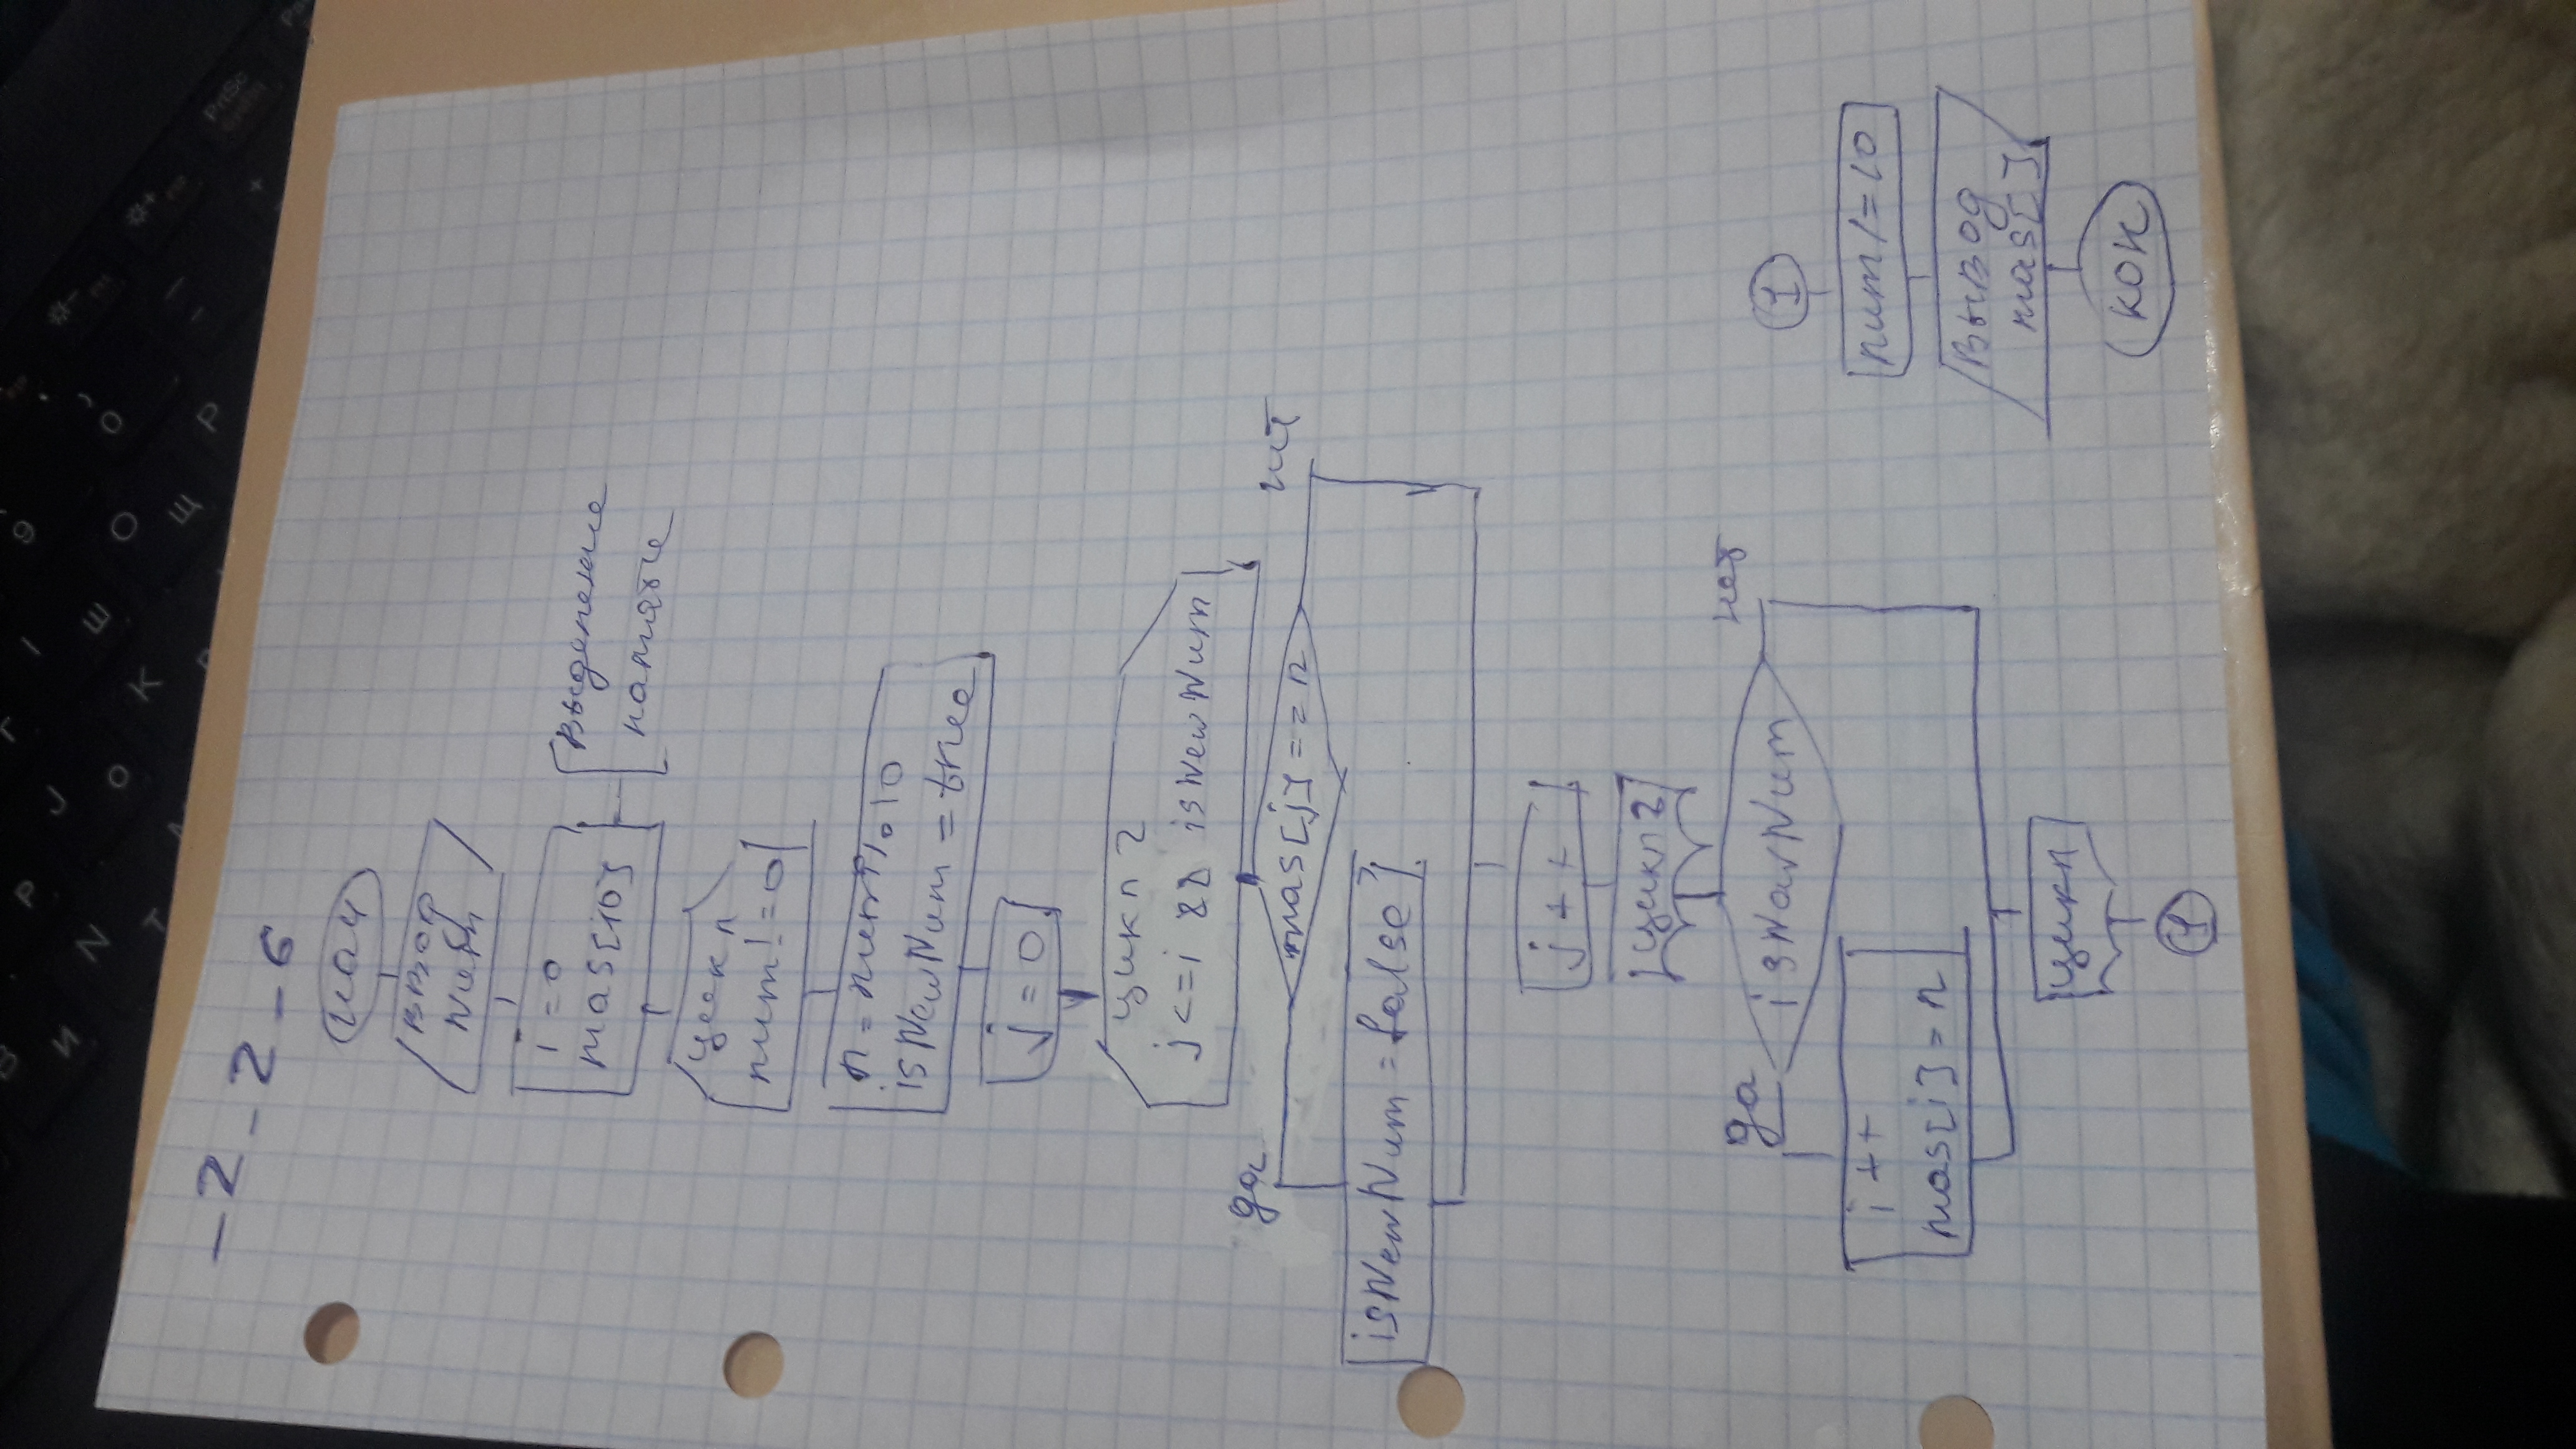 -2-2-6
нач
ввод
num
i=0
mas[10]
выделение
памяти
цикл
num!=0
n=num%10
isNewNum=true
j=0
цикл 2
j<=i && isNewNum
да
mas[j]==n
нет
isNewNum=false
j++
цикл 2
да
isNewNum
нет
i++
mas[i]=n
цикл
1
1
num/=10
Вывод
mas[]
кон